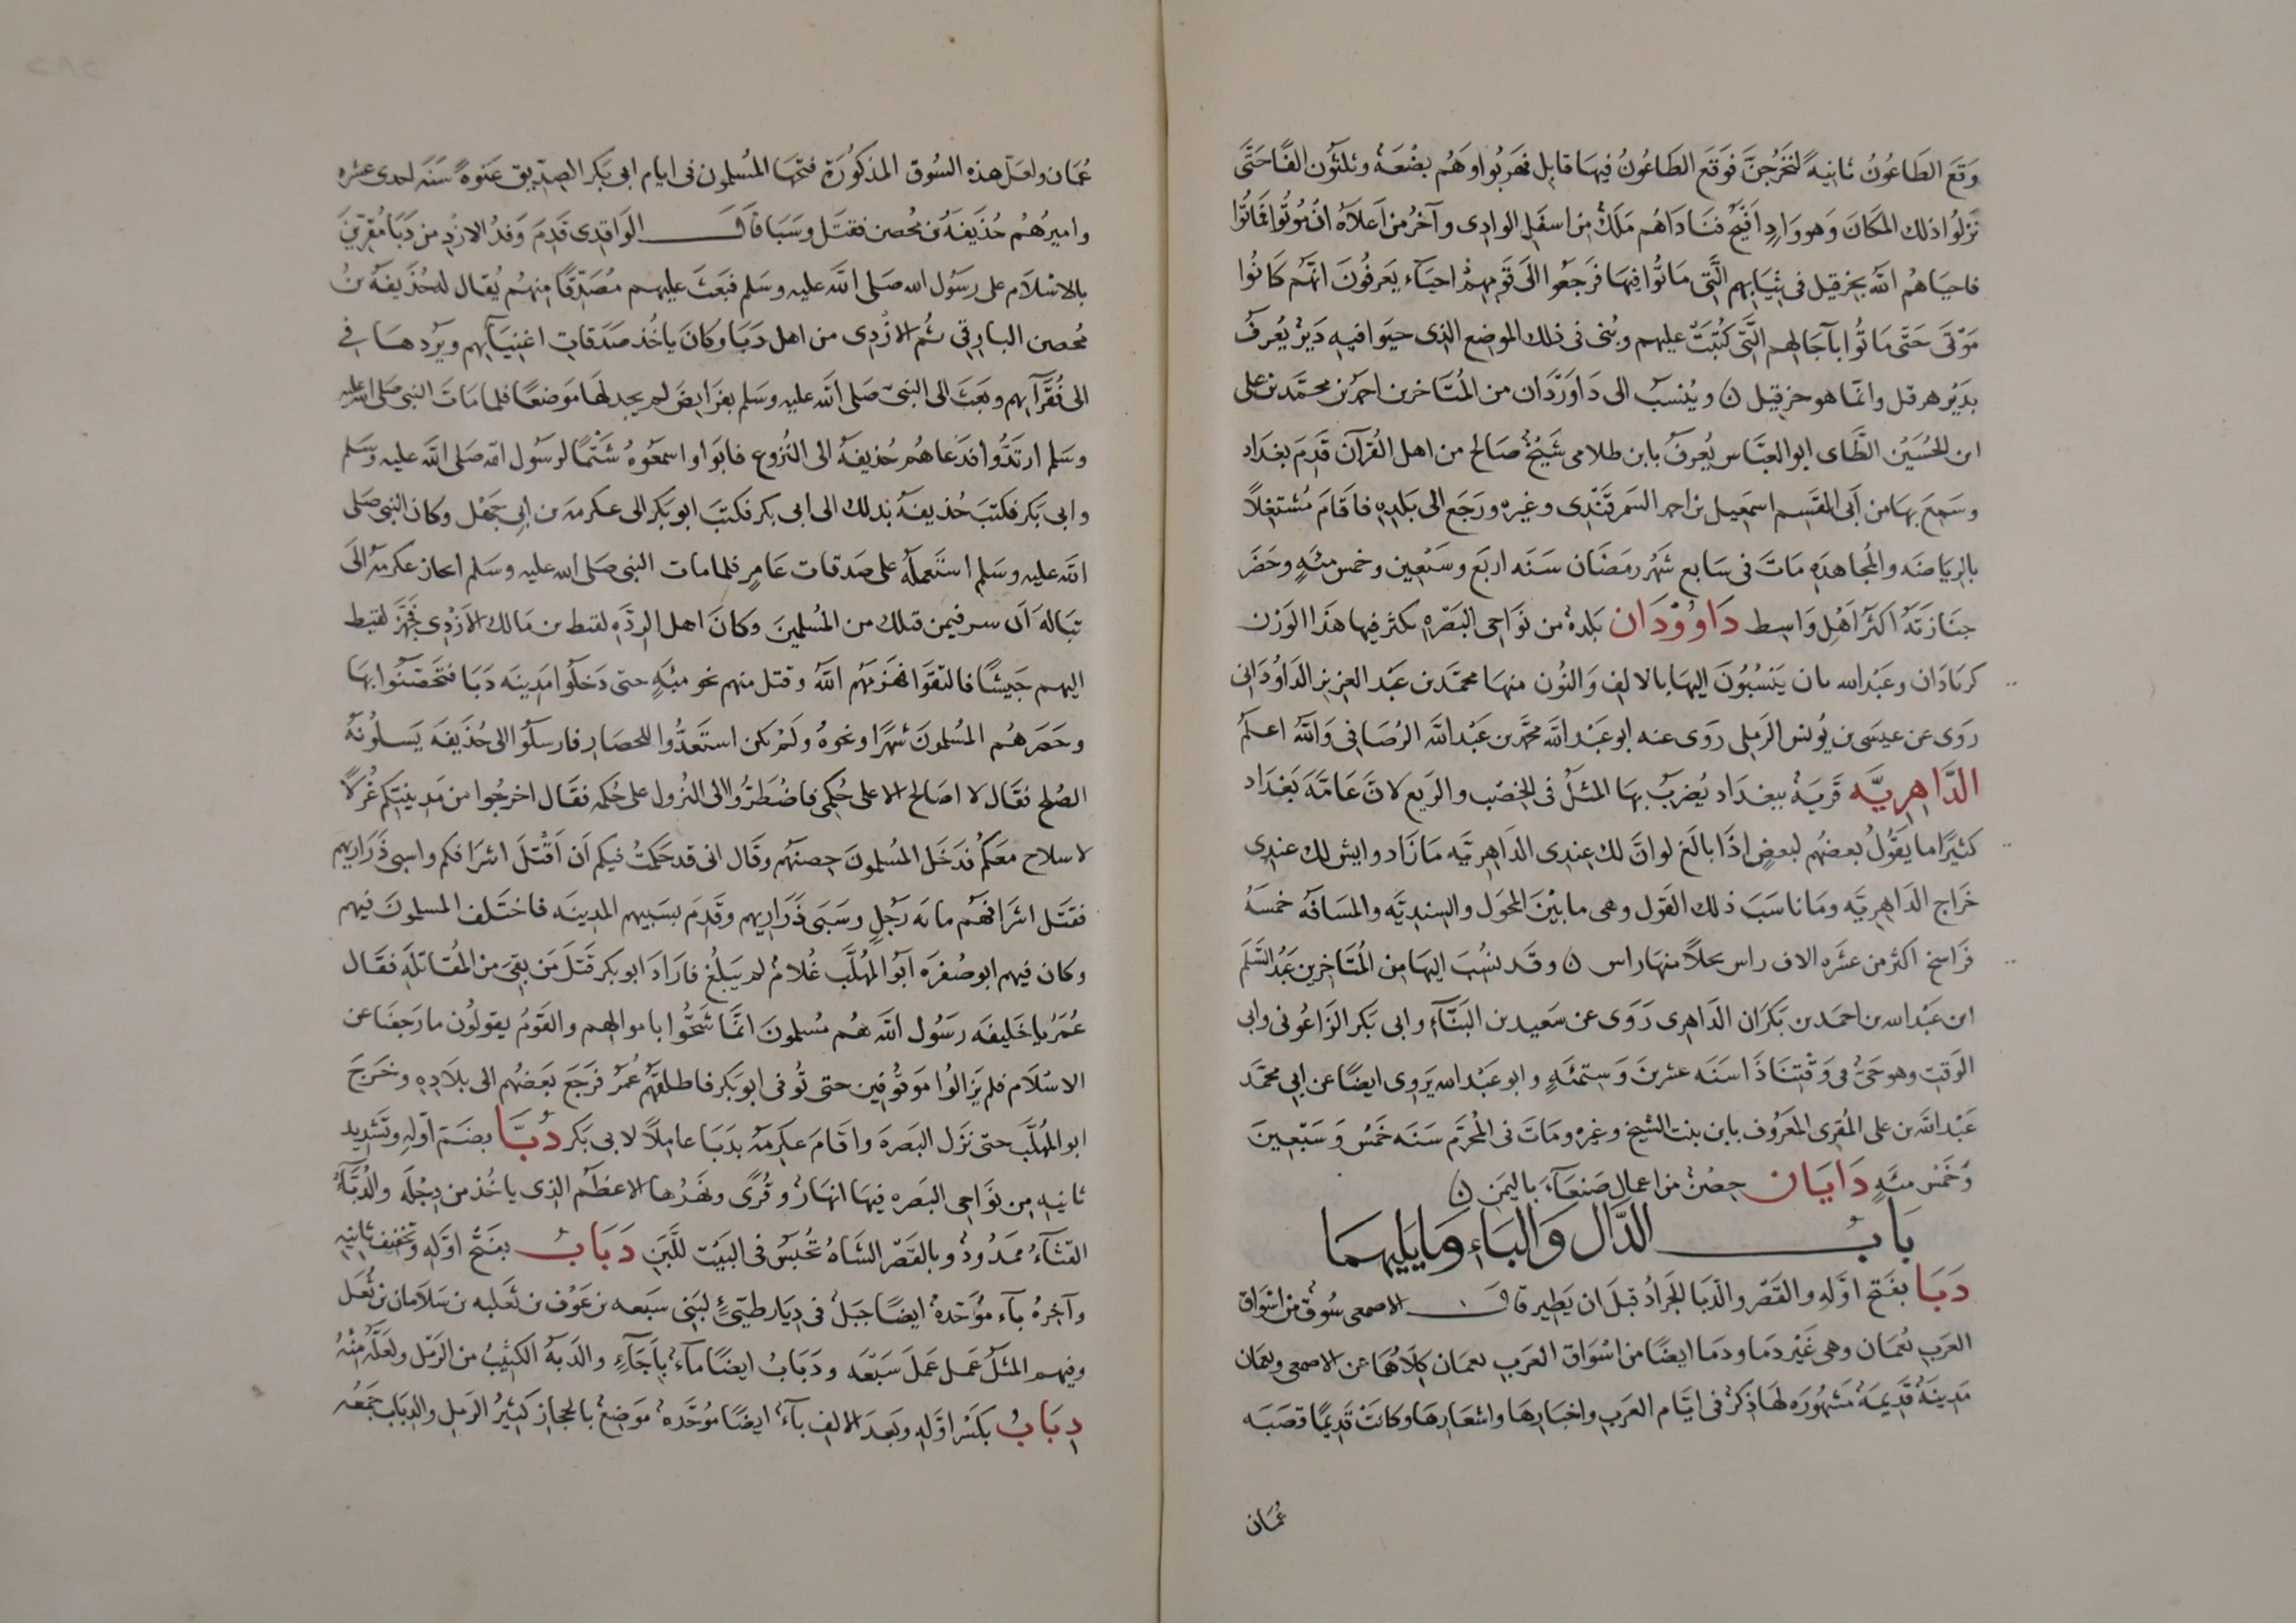 وَقَعَ الطَاعُونُ ثانيةً لنَخَرُجنَّ فوَقَعَ الطَاعُونُ فيهَا قابل فهَربُوا وَهُم بضْعَةٌ وثلثُون الفًا حَتَّى
نزلُوا ذلك المكَانَ وَهو وَادٍ اَفيَحُ فنَادَاهُم مَلَكٌ مِن اسفَلِ الوادى وآخرُ من اَعلَاهُ انْ مُوتُوا فمَاتُوا
فاحيَاهُم اللّٰه بحزقيل فى ثيَابِهم الَّتى مَاتُوا فيهَا فرَجَعُوا الَى قَومِهِمْ احيَآء يَعرفُونَ انَّهم كَانوُا
مَوْتَى حَتَّى مَاتُوا بآجَالهِم الَّتى كُتبَتْ عليهم وبُنى فى ذلك الموضع الذى حيَوا فيهِ دَيرٌ يُعرفُ
بدَيْر هرقل وانمَا هو حزقيل ن ويُنسَبُ الى دَاوَرْدَان من المُتَأخرين احمدُ بن محمَّد بن على
ابن الحُسَيْن الطَّاى ابو العبَّاس يُعرفُ بابن طلامى شَيْخٌ صَالح من اهل القُرآن قَدِمَ بغدَاد
وسَمِعَ بهَا من اَبى القَسِم اسمَعيل بن احمد السَمرقَنْدى وغيره ورَجَعَ الى بَلدِهِ فاقَامَ مُشتغلًا
بالريَاضَه والمُجاهدَهِ مَاتَ فى سَابع شَهْر رمَضَان سَنَه اربَع وسَبْعِين وخمس مئَهٍ وحَضَر
جنَازتَهُ اكثَر اَهْل وَاسِط دَاوُوْدَان بَلدةٌ من نوَاحى البَصْرهِ يكثر فيها هَذا الوَزن
كزيَادَان وعَبْد الله بان يَنسُبُونَ اليهَا بالالِف وَالنُون منهَا محمَّد بن عَبْد العَزيز الدَاوُدَانى
رَوَى عن عيسَى بن يُونس الرَملى رَوَى عنه ابو عَبْد اللّٰه محمَّد بن عَبْد اللّٰه الرُصَافى وَاللّٰهُ اعلَم
الدَّاهِرِيَّه قَريَهٌ ببغدَاد يُضرَبُ بهَا المثلُ فى الخصْب والريَع لانَّ عَامَّهَ بَغدَاد
كثيرًا ما يَقُولُ بَعضهُم لبعضٍ اذَا بالَغ لو انَّ لك عِندِى الدَاهِرِيَّه مَا زَاد وايش لك عندِى
خَراج الدَاهِرِيَّه ومَا ناسَبَ ذلك القَول وهى ما بيْنَ المحَوَّل والسِندِيَّه والمسَافَهُ خمسَهُ
فرَاسخ اكثر من عشَره الاف راس نحلًا منهَا راس ن وقَد نسُبَ اليهَا مِن المُتَأخرين عَبْد السَّلَم
ابن عَبْد الله بن احمَد بن بَكرَان الدَاهِرى رَوَى عن سَعيد بن البَنَّآءِ وابى بَكر الزاغُونى وابى
الوَقتِ وهو حَىٌ فى وَقتِنَا ذَا سَنَه عشرينَ وَسِتمئَهٍ وابو عَبْد الله يَروى ايضًا عن ابى محمَّد
عَبْد اللّٰه بن على المُقرى المَعرُوف بابن بنت الشيخ وغيره ومَاتَ فى المُحرَّم سَنَه خَمْس وَسَبْعِينَ
وَخَمْس مئَهٍ دَايَان حِصْنٌ من اعمال صَنعَآءَ باليمَن ن
بَابُ الدَّال وَالبَاءِ وَمَا يَليهمَا
دَبَا بفَتح اوَّلهِ والقَصْر والدَبَا الجَرَادُ قبلَ ان يَطِير قال الاصمعى سُوقٌ من اسْوَاق
العَربِ بعُمَان وهى غَيْر دَمَا ودَمَا ايضًا من اسْوَاق العَربِ بعمَان كلَاهُمَا عن الاصمعى وبعمَان
مَدينَةٌ قَدِيمَهٌ مَشهُورَه لهَا ذِكرٌ فى ايَّام العَربِ واخبَارهَا واشعَارهَا وكانَتْ قَديمًا قصَبَه
عُمَان
عُمَان ولعَلَّ هذه السُوق المَذكُورَة فتحهَا المُسلمون فى ايام ابى بَكر الصِدِّيق عَنوةً سَنَه احدى عشره
واميرُهُم حُذَيفَةُ بن مُحصن فقتَل وسَبَا قالَ الوَاقدِى قَدِمَ وَفدُ الازدِ من دَبَا مُقِرِّينَ
بالاسْلَام على رَسُول الله صَلى اللّٰه عليه وسَلم فبَعَثَ عليهم مُصَدِّقًا منهُم يُقال لهُ حُذَيفَةُ بنُ
مُحصن البَارِقى ثم الازْدِى من اهل دَبَا وكانَ ياخُذ صَدَقاتِ اغنيَآئهم ويَرُدهَا فى
الى فُقَرآئهم وبَعَثَ الى النبىّ صَلى اللّٰه عليه وسَلم بفرَايِضَ لم يجد لهَا مَوضعًا فلما مَاتَ النبى صَلى الله عليه
وسَلم ارتَدُّوا فدَعاهُم حُذيفَهُ الى النُزُوع فابَوا واسمعُوهُ شَتْمًا لرسُول الله صَلى اللّٰه عليه وسَلم
وابى بَكر فكتبَ حُذيفَهُ بذلك الى ابى بكر فكتبَ ابو بَكر الى عكرمه بن اَبى جَهْل وكان النبى صَلى
اللّٰه عليه وسَلم استَعملَهُ على صَدقات عَامرٍ فلما مات النبى صَلى الله عليه وسَلم انحاز عكرمَهُ الَى
تبَالَهَ اَن سر فيمن قبلك من المُسلمينَ وكانَ اهل الردَّه لقيط بن مَالك الاَزْدِى فجَهَّز لقيط
اليهم جَيشًا فالتقَوا فهَزمَهُم اللّٰه وقتل منهم نحو مئَهٍ حتى دَخلُوا مَدينَه دَبَا فتَحَصّنُوا بهَا
وحَصَرهُم المُسلمونَ شهرًا ونحوهُ ولَمْ يكن استَعدُّوا للحصَارِ فارسلُوا الى حُذَيفَه يَسلونَهُ
الصُلح فقَال لا اصَالح الا على حُكمى فاضُطرُّوا الى النُزول على حُكمه فقَال اخرجُوا من مَدِينتِكم عُزلًا
لا سلاح معَكُم فدَخَل المُسلمونَ حِصنَهُم وقَال انى قد حَكمتُ فيكم اَن اَقْتُلَ اشرَافكم واسبى ذَرَاريهم
فقَتَل اشرَافهُم مائه رَجُلٍ وسَبَى ذَرَاريهم وقَدِمَ بسَبيهم المدينَه فاختَلف المسلمونَ فيهم
وكان فيهم ابو صُفرَه ابُو المُهلَّب غُلامٌ لم يَبلُغ فارَادَ ابو بكر قَتْلَ مَن بَقِىَ من المُقَاتلَهِ فقَال
عُمَرُ يا خَليفَه رَسُول اللّٰه هُم مُسلمونَ انمَّا شَحُّوا باموالِهم والقَومُ يقولُون ما رَجعنَا عن
الاسْلَام فلم يَزالُوا مَوقُوفين حتى تُوفى ابو بَكر فاطلقهُم عُمَرُ فرَجَعَ بَعضُهُم الى بلَادِهِ وخَرجَ
ابو المُهلَّب حتى نزَل البَصرَه واقَامَ عكرمَهُ بدَبَا عامِلًا لابى بَكر دُبَّا بضَمّ اَوَّلهِ وتَشديد
ثانيهِ مِن نوَاحى البَصره فيهَا انهَارٌ وقُرًى ونَهَرُها الاعظَم الذى ياخُذ من دِجْلَه والدُبَّآءُ
القثَّآءُ ممَدُودٌ وبالقَصْر الشَاهُ تُحبَسُ فى البَيْت للَّبَن دَبَابُ بفَتْح اوَّلهِ وتخفيف ثانيهِ
وآخرهُ بآء مُوَحّدةٌ ايضًا جبَلٌ فى دِيَار طيّئٍ لبَنى سَبعه بن عَوْف بن ثَعلَبه بن سَلَامان بن ثُعَل
وفيهم المثَلُ عَمل عَملَ سَبْعَه ودَبَابُ ايضًا مآءٌ بأجَآءِ والدَبهُ الكثيبُ من الرَمْل ولعَلَّهُ مِنْهُ
دِبَابُ بكَسْر اوَّلهِ وبَعدَ الالف بآءٌ ايضًا مُوَحّدةٌ مَوَضِعٌ بالحجَاز كثيرُ الرَملِ والدِبَابُ جَمْعُه